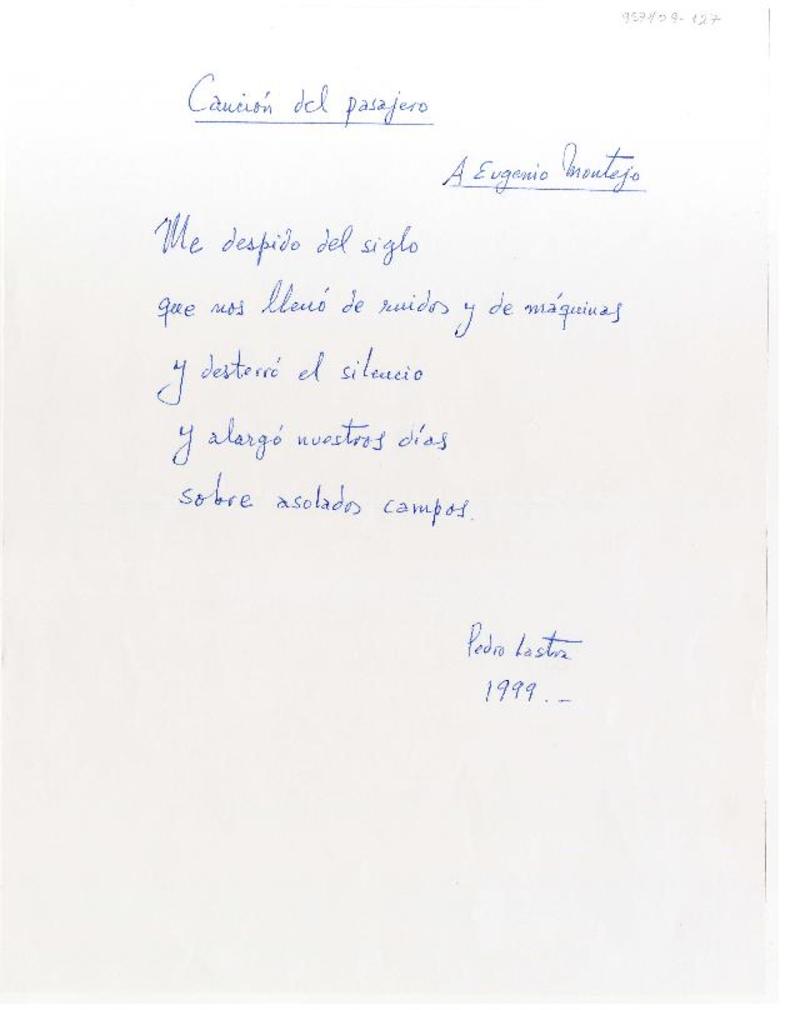 957109-127
Canción del pasajero
A Eugenio Montejo
Me despido del siglo
que nos llenó de ruidos y de máquinas
y desterró el silencio
y alargó nuestros días
sobre asolados campos.
Pedro Lastra
1999.-